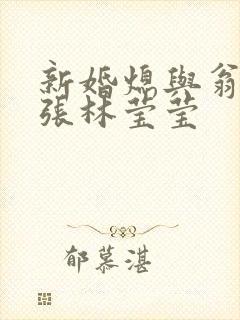 新婚熄與翁
張林莹莹
郁慕湛